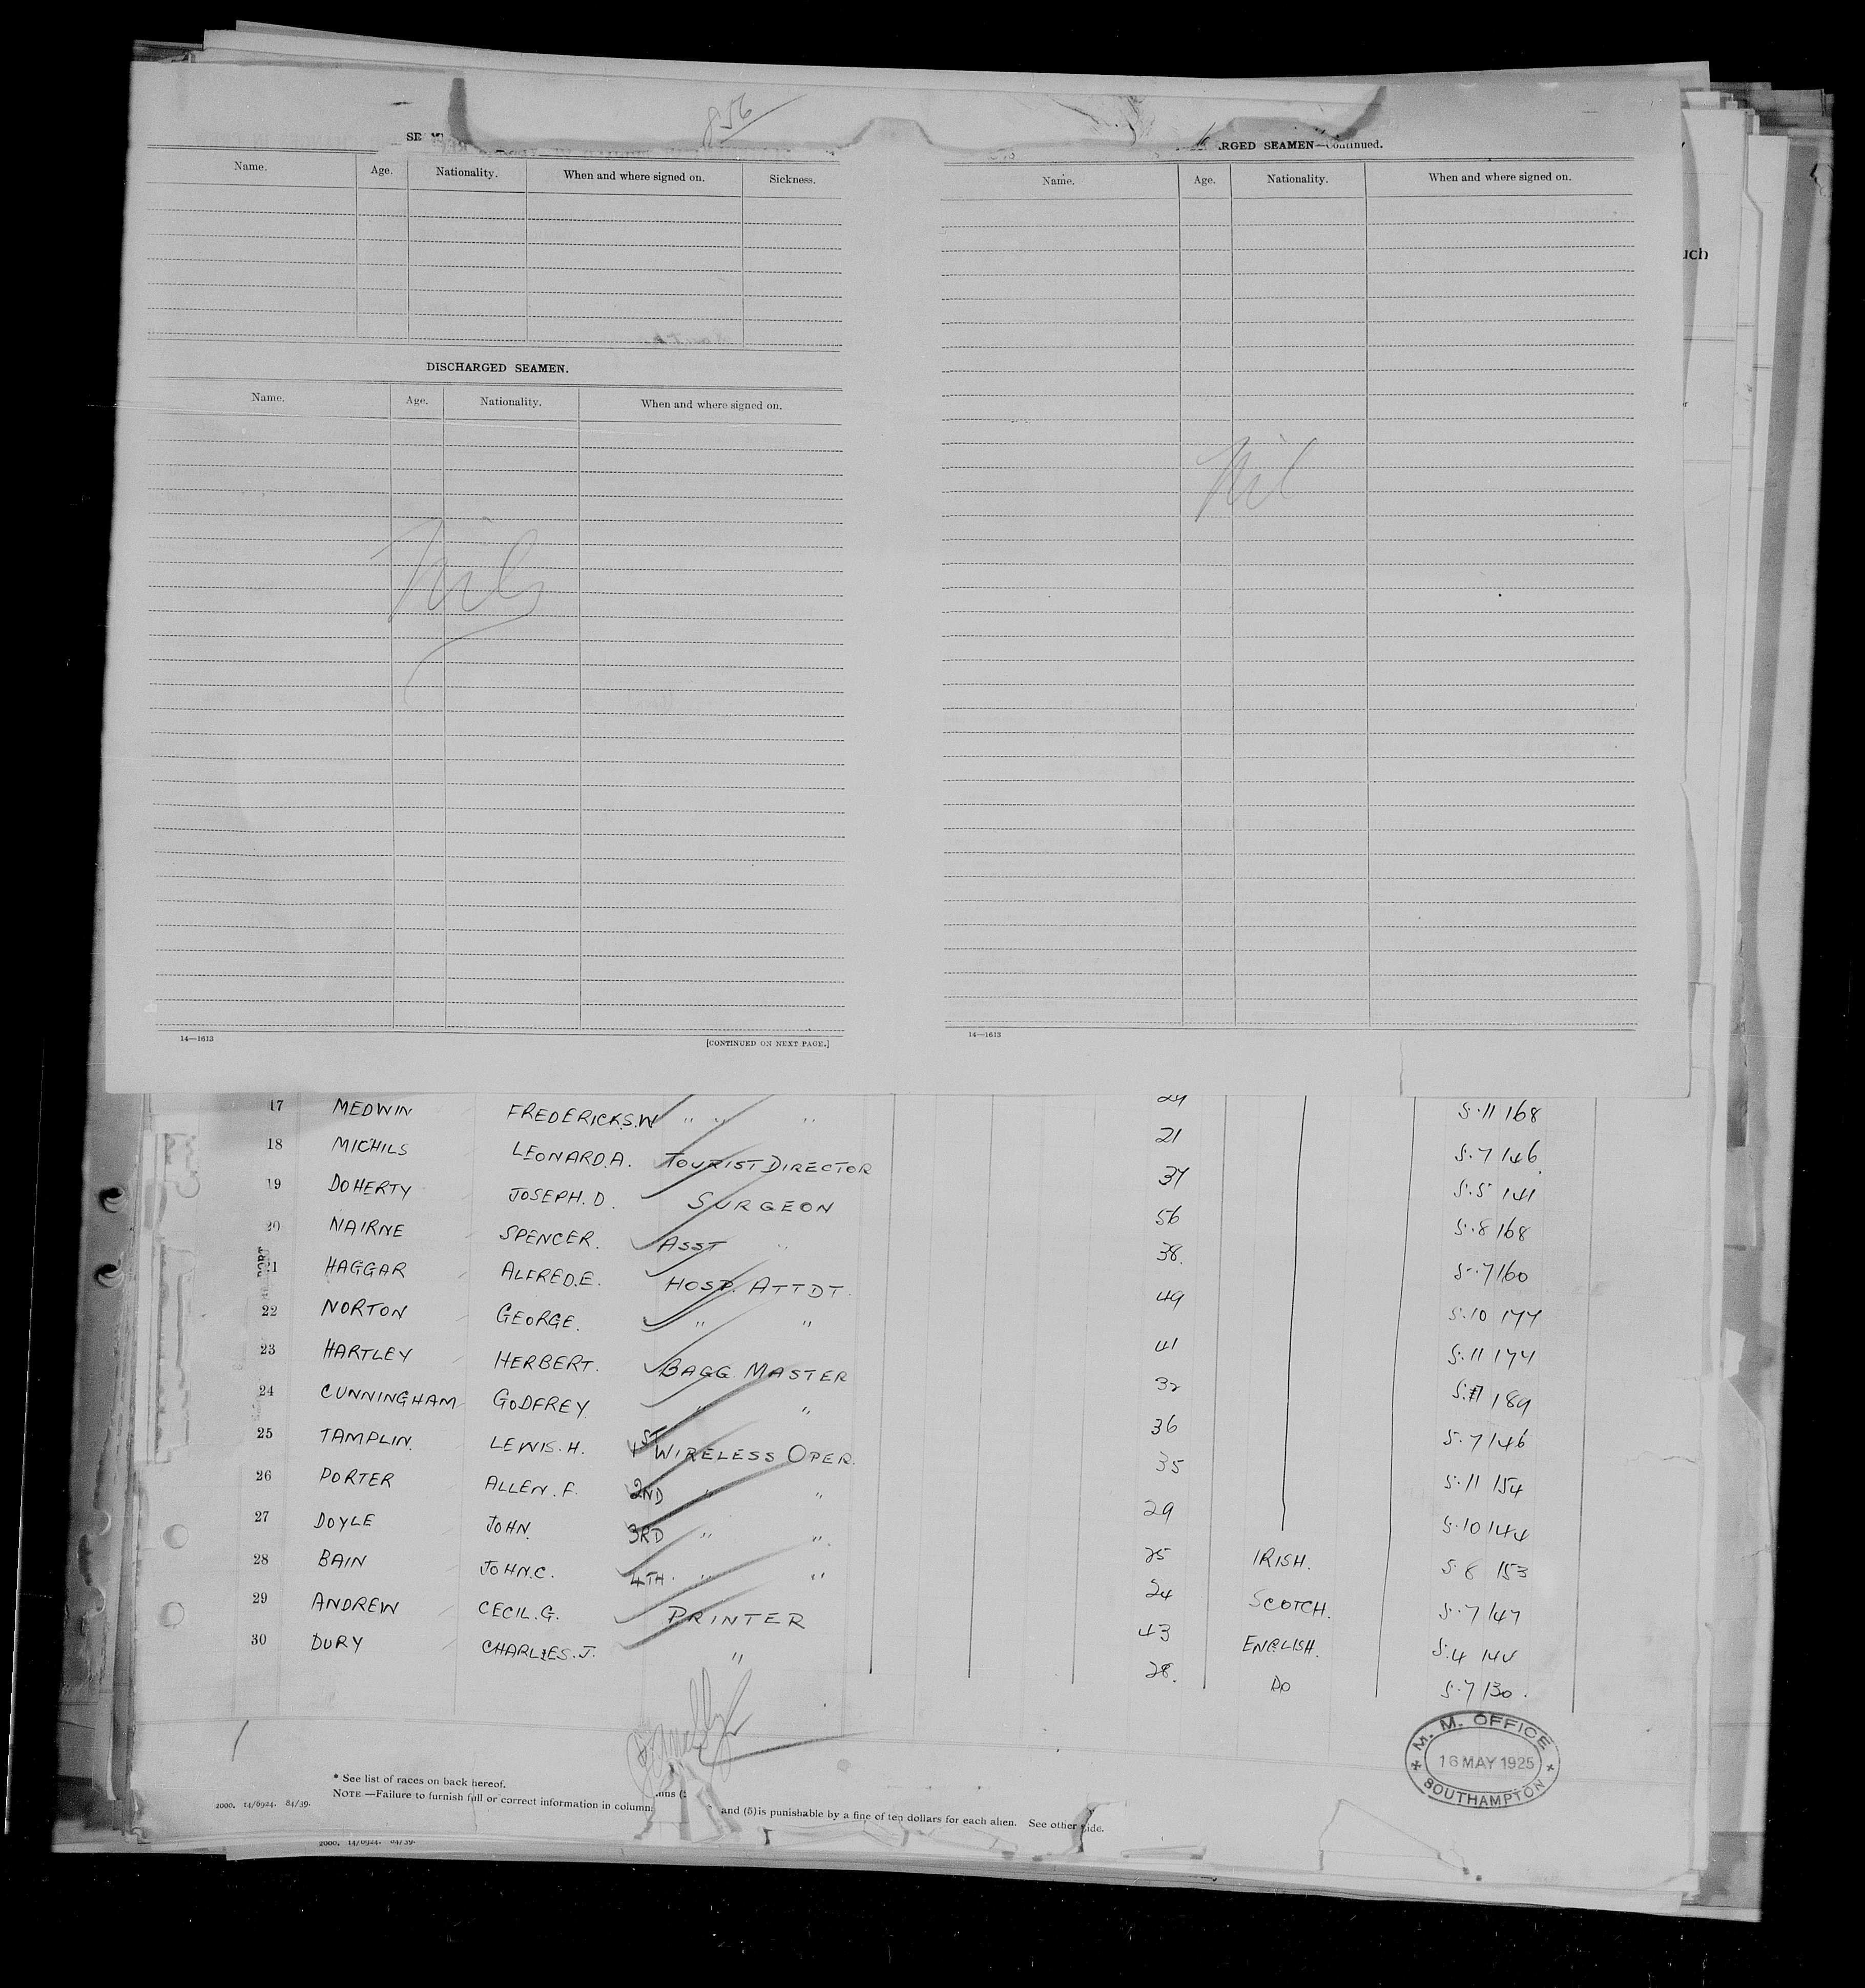 856
RGED SEAMEN—Continued.
Name. Age. Nationality. When and where signed on. Sickness.
Name. Age. Nationality. When and where signed on.
DISCHARGED SEAMEN.
Name. Age. Nationality. When and where signed on.
Nil
Nil
14—1613 [CONTINUED ON NEXT PAGE.]
14—1613
uch
17 MEDWIN FREDERICK.S.W " " " 24 5.11 168
18 MICHILS LEONARD.A. TOURIST DIRECTOR 21 5.7 146
19 DOHERTY JOSEPH.D. SURGEON 37 5.5 141
20 NAIRNE SPENCER. ASST " 56 5.8 168
21 HAGGAR ALFRED.E. HOSP. ATTDT. 38. 5.7 160
22 NORTON GEORGE. " " 49 5.10 177
23 HARTLEY HERBERT. BAGG. MASTER 41 5.11 174
24 CUNNINGHAM GODFREY. " " 32 189
25 TAMPLIN. LEWIS.H. 1ST WIRELESS OPER. 36 5.7 146
26 PORTER ALLEN.F. 2ND " " 35 5.11 154
27 DOYLE JOHN. 3RD " " 29 5.10 144
28 BAIN JOHN.C. 4TH. " " 25 IRISH. 5 8 153
29 ANDREW CECIL.G. PRINTER 24 SCOTCH. 5.7 147
30 DURY CHARLES.J. " 43 ENGLISH. 5.4
28. DO 5.7 130.
M. M. OFFICE
16 MAY 1925
SOUTHAMPTON
* See list of races on back hereof.
NOTE —Failure to furnish full or correct information in column and (5) is punishable by a fine of ten dollars for each alien. See other side.
2000. 14/6924. 84/39.
2000. 14/6924. 84/39.